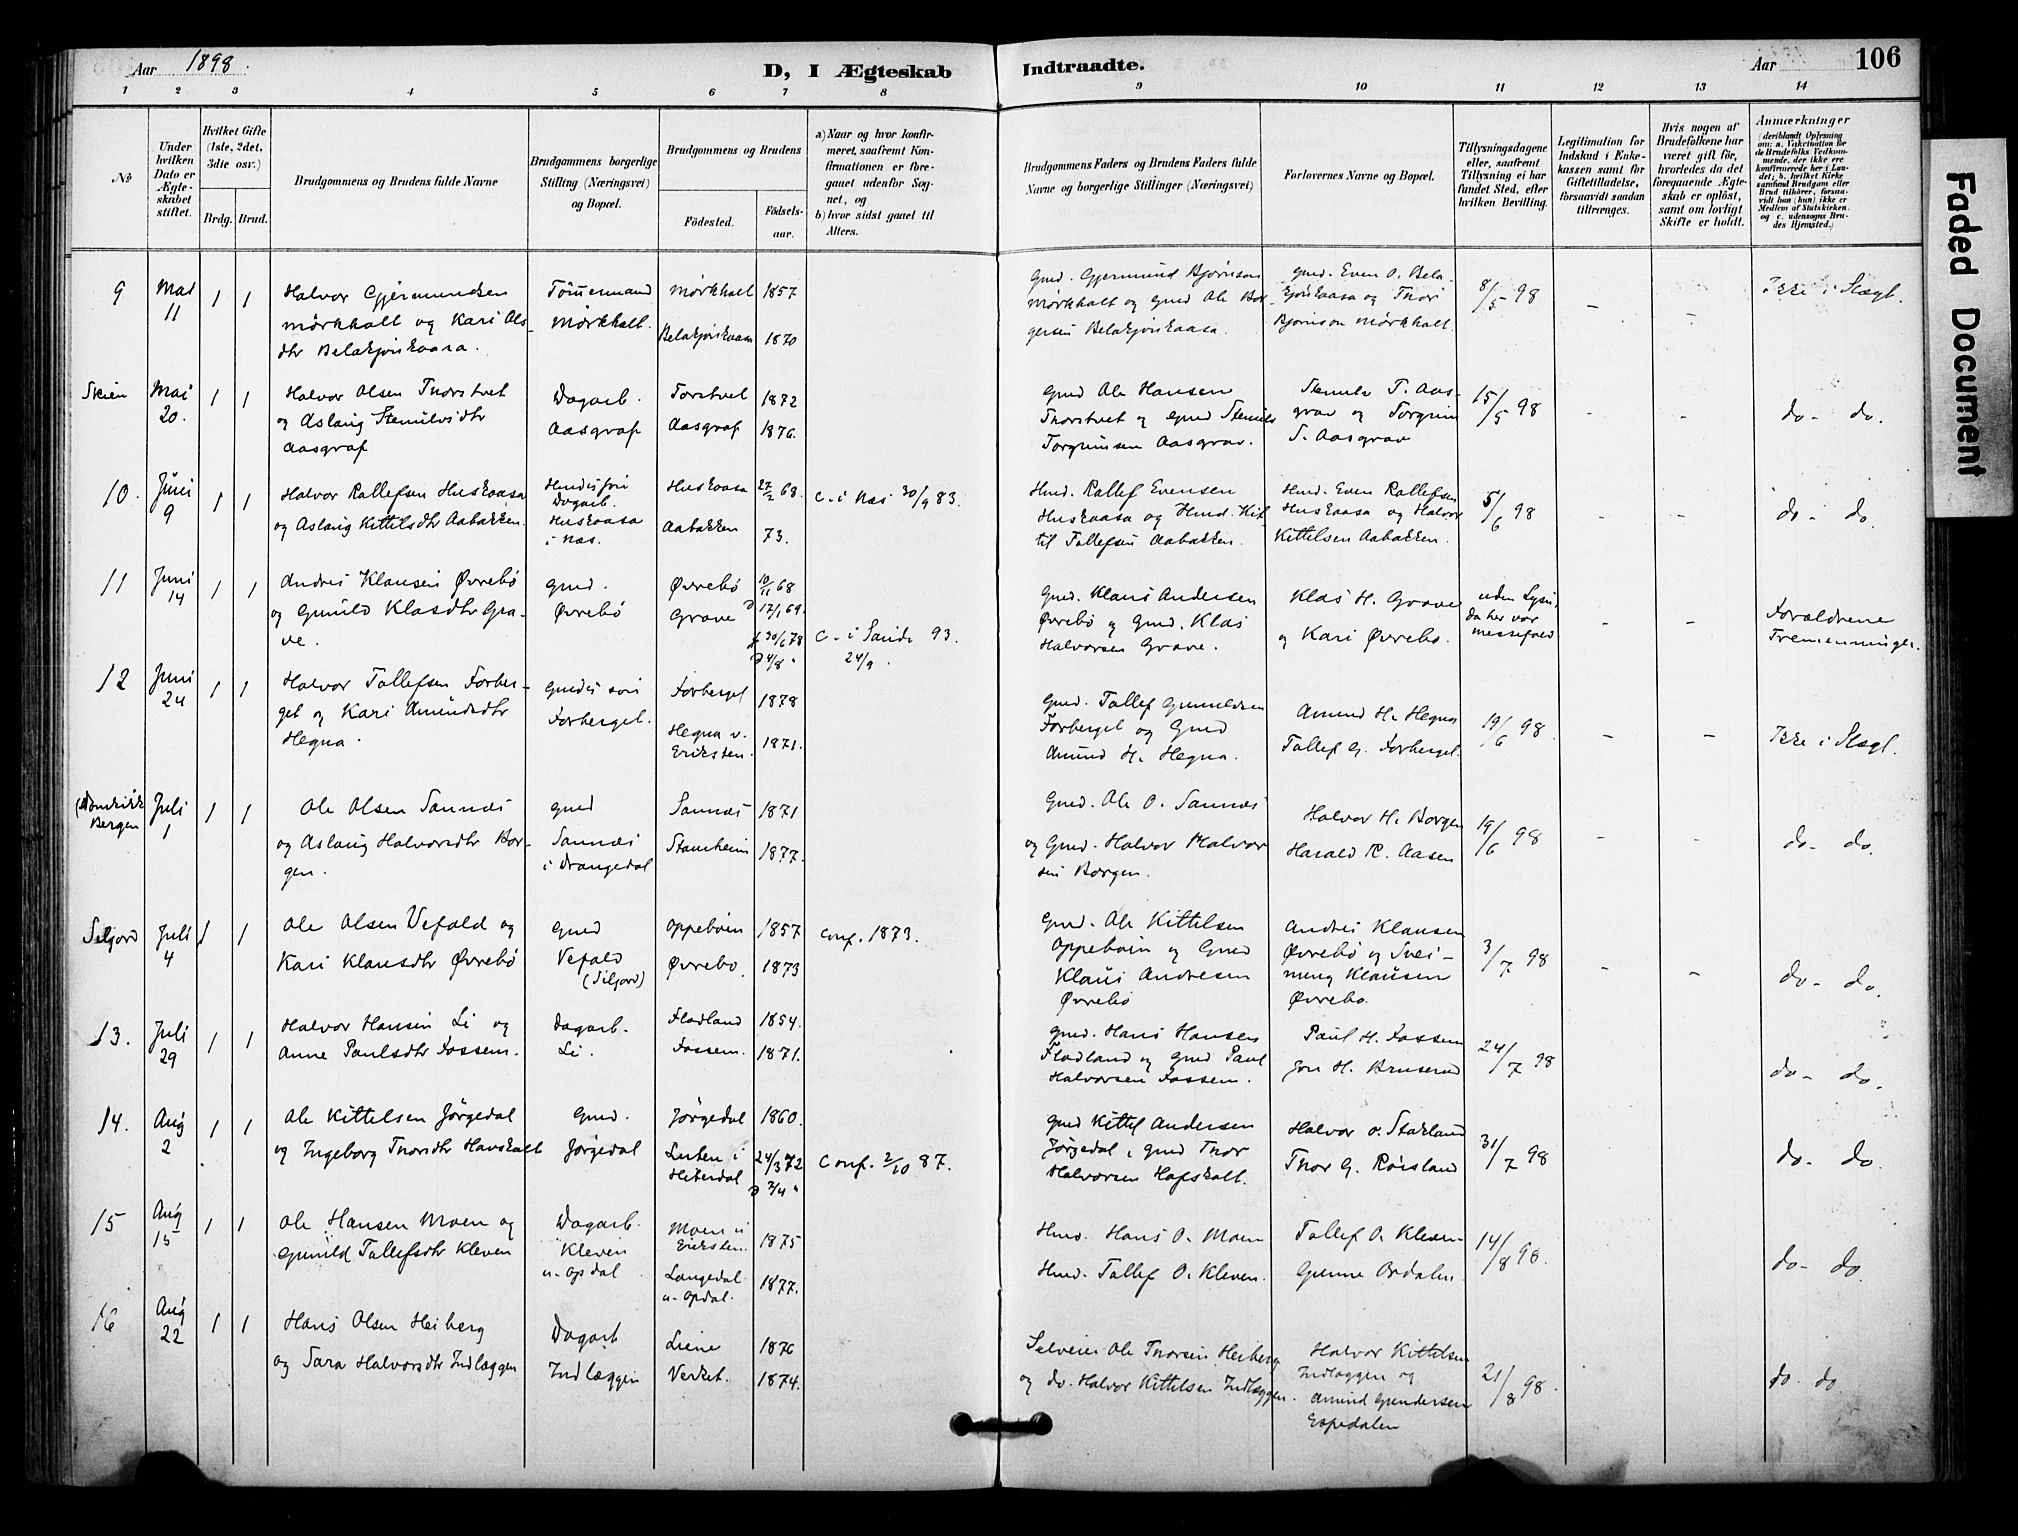 Aar 1898.
D, I Ægteskab Indtraadte.
Aar 106
1 2 3 4 5 6 7 8 9 10 11 12 13 14
№
Under hvilken Dato er Ægteskabet stiftet.
Hvilket Gifte (1ste, 2det, 3die osv.)
Brdg. Brud.
Brudgommens og Brudens fulde Navne
Brudgommens borgerlige Stilling (Næringsvei) og Bopæl.
Brudgommens og Brudens
Fødested. Fødselsaar.
a) Naar og hvor konfirmeret, saafremt Konfirmationen er foregaaet udenfor Sognet, og
b) hvor sidst gaaet til Alters.
Brudgommens Faders og Brudens Faders fulde Navne og borgerlige Stillinger (Næringsvei)
Forlovernes Navne og Bopæl.
Tillysningsdagene eller, saafremt Tillysning ei har fundet Sted, efter hvilken Bevilling.
Legitimation for Indskud i Enkekassen samt for Giftetilladelse, forsaavidt saadan tiltrænges.
Hvis nogen af Brudefolkene har været gift før, hvorledes da det foregaaende Ægteskab er opløst, samt om lovligt Skifte er holdt.
Anmærkninger
Faded Document
9 Mai 11 1 1 Halvor Gjermundsen Mørkhalt og Kari Olsdtr Belakjønkaasa. Tømmermand Mørkhalt. Mørkhalt 1857 Belakjønkaasa 1870
Gmd. Gjermund Bjørnson Mørkhalt og Gmd Ole Borgersen Belakjønkaasa. Gmd. Even O. Belakjønkaasa og Thor Bjørnson Mørkhalt 8/5 98 - - Ikke i Slægt.
Skien Mai 20. 1 1 Halvor Olsen Thorstvet og Aslaug Stenulvsdtr Aasgraf Dagarb. Aasgraf Torstvet 1872 Aasgraf 1876.
Gmd Ole Hansen Thorstvet og Gmd Stenulv Torgrimsen Aasgrav. Stenulv T. Aasgrav og Torgrim S. Aasgrav 15/5 98 - - do - do.
10. Juni 9 1 1 Halvor Rollefsen Huskaasa og Aslaug Kittilsdtr Aabakken. Dagarb. Huskaasa i Næs. Huskaasa 27/2 68. Aabakken 73. c. i Næs 30/9 83.
Hmd. Rollef Evensen Huskaasa og Hmd. Kittil Tollefsen Aabakken. Hmd. Even Rollefsen Huskaasa og Halvor Kittelsen Aabakken. 5/6 98 - - do - do.
11 Juni 14 1 1 Andres Klausen Øvrebø og Gunild Klasdtr Grave. Gmd. Øvrebø Øvrebø 10/11 68 Grave D 17/1 69. f 30/6 78 D 4/8 " c. i Sauda 93. 24/9.
Gmd. Klaus Andersen Øvrebø og Gmd. Klas Halvorsen Grave. Klas H. Grave og Kari Øvrebø. uden Lysn. da her var messefald - - Forældrene Tremenninger.
12 Juni 24 1 1 Halvor Tollefsen Forberget og Kari Amundsdtr Hegna. Gmds søn Forberget. Forberget 1878 Hegna v. Eriksten. 1871.
Gmd. Tollef Gunnuldsen Forberget og Gmd Amund H. Hegna. Amund H. Hegna Tollef G. Forberget. 19/6 98. - - Ikke i Slægt.
(Domkirk Bergen Juli 1 1 1 Ole Olsen Sannæs og Aslaug Halvorsdtr Borgen. Gmd Sannæs i Drangedal Sannæs 1871 Stamheim 1877.
Gmd. Ole O. Sannæs og Gmd. Halvor Halvorsen Borgen. Halvor H. Borgen Harald K. Aasen 19/6 98 - - do - do.
Seljord Juli 4 1 1 Ole Olsen Vefald og Kari Klausdtr Øvrebø Gmd Vefald (Siljord) Oppeboen 1857 Øvrebø. 1873 conf. 1873.
Gmd. Ole Kittilsen Oppeboen og Gmd Klaus Andresen Øvrebø Andres Klausen Øvrebø og Sveinung Klausen Øvrebø. 3/7 98 - - do - do.
13. Juli 29 1 1 Halvor Hansen Li og Anne Paulsdtr Fossem. Dagarb. Li. Flodland 1854. Fossem. 1871.
Gmd. Hans Hansen Flodland og Gmd Paul Halvorsen Fossem. Paul H. Fossem Jon H. Bruserud 24/7 98 do - do.
14. Aug 2 1 1 Ole Kittelsen Jørgedal og Ingeborg Thorsdtr Havskolt Gmd. Jørgedal Jørgedal 1860. Lurten i Hiterdal 24/3 72 D 7/4 " conf. 2/10 87.
Gmd Kittel Andersen Jørgedal, Gmd Thor Halvorsen Hafskolt. Halvor O. Stokland Thor G. Rørsland 31/7 98 do - do.
15 Aug 15 1 1 Ole Hansen Moen og Gunild Tollefsdtr Kleven Dagarb. Kleven u. Opdal Moen u. Eriksten. 1875 Langedal u. Opdal. 1877.
Hmd. Hans O. Moen Hmd. Tollef O. Kleven. Tollef O. Kleven Gunne Ordalen. 14/8 98. do - do.
16 Aug 22 1 1 Hans Olsen Heiberg og Sara Halvorsdtr Indlæggen Dagarb Indlæggen Liene 1876 Verket. 1874.
Selveier Ole Thorsen Heiberg og do. Halvor Kittilsen Indlæggen. Halvor Kittilsen Indlæggen og Amund Gundersen Espedalen 21/8 98. do. do.